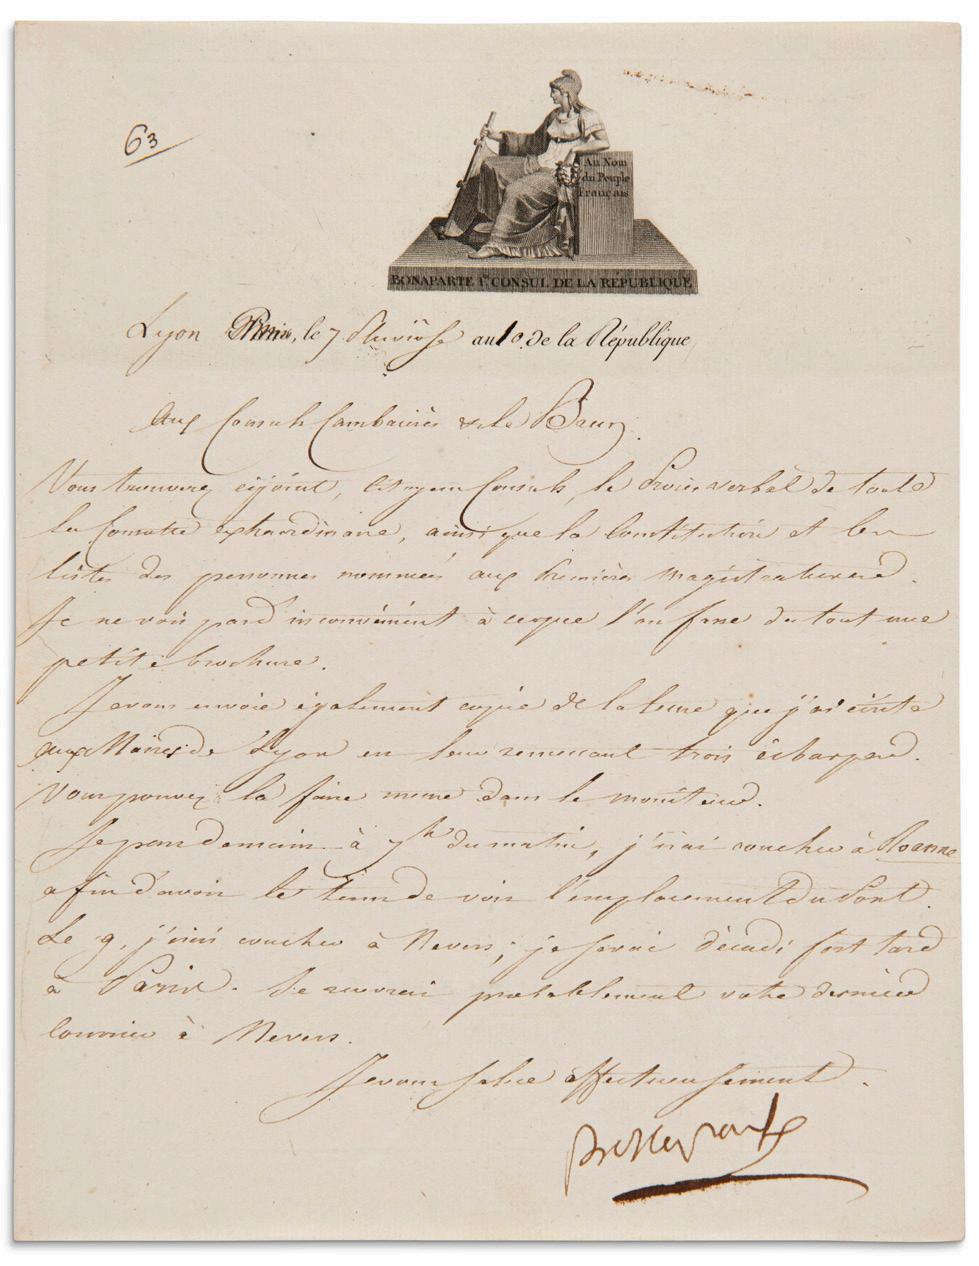 63
Au Nom
du Peuple
Français
BONAPARTE 1er CONSUL DE LA RÉPUBLIQUE
Lyon Paris, le 7 Pluviôse an 10. de la République,
Aux Consuls Cambacérès & Le Brun.
Vous trouverez cijoint, Citoyens Consuls, le Procès verbal de toute
la Consulte extraordinaire, ainsi que la Constitution et les
listes des personnes nommées aux premières magistratures.
Je ne vois pas d'inconvénient à ceque l'on fasse du tout une
petite brochure.
Je vous envoie également copie de la lettre que j'ai écrite
aux Maires de Lyon en leur remettant trois écharpes.
Vous pouvez la faire mettre dans le moniteur.
Je pars demain à du matin, j'irai coucher à Roanne
afin d'avoir le tems de voir l'emplacement du Pont.
Le 9, j'irai coucher à Nevers; je serai décadi fort tard
à Paris. Je recevrai probablement votre dernier
Courrier à Nevers.
Je vous salue affectueusement.